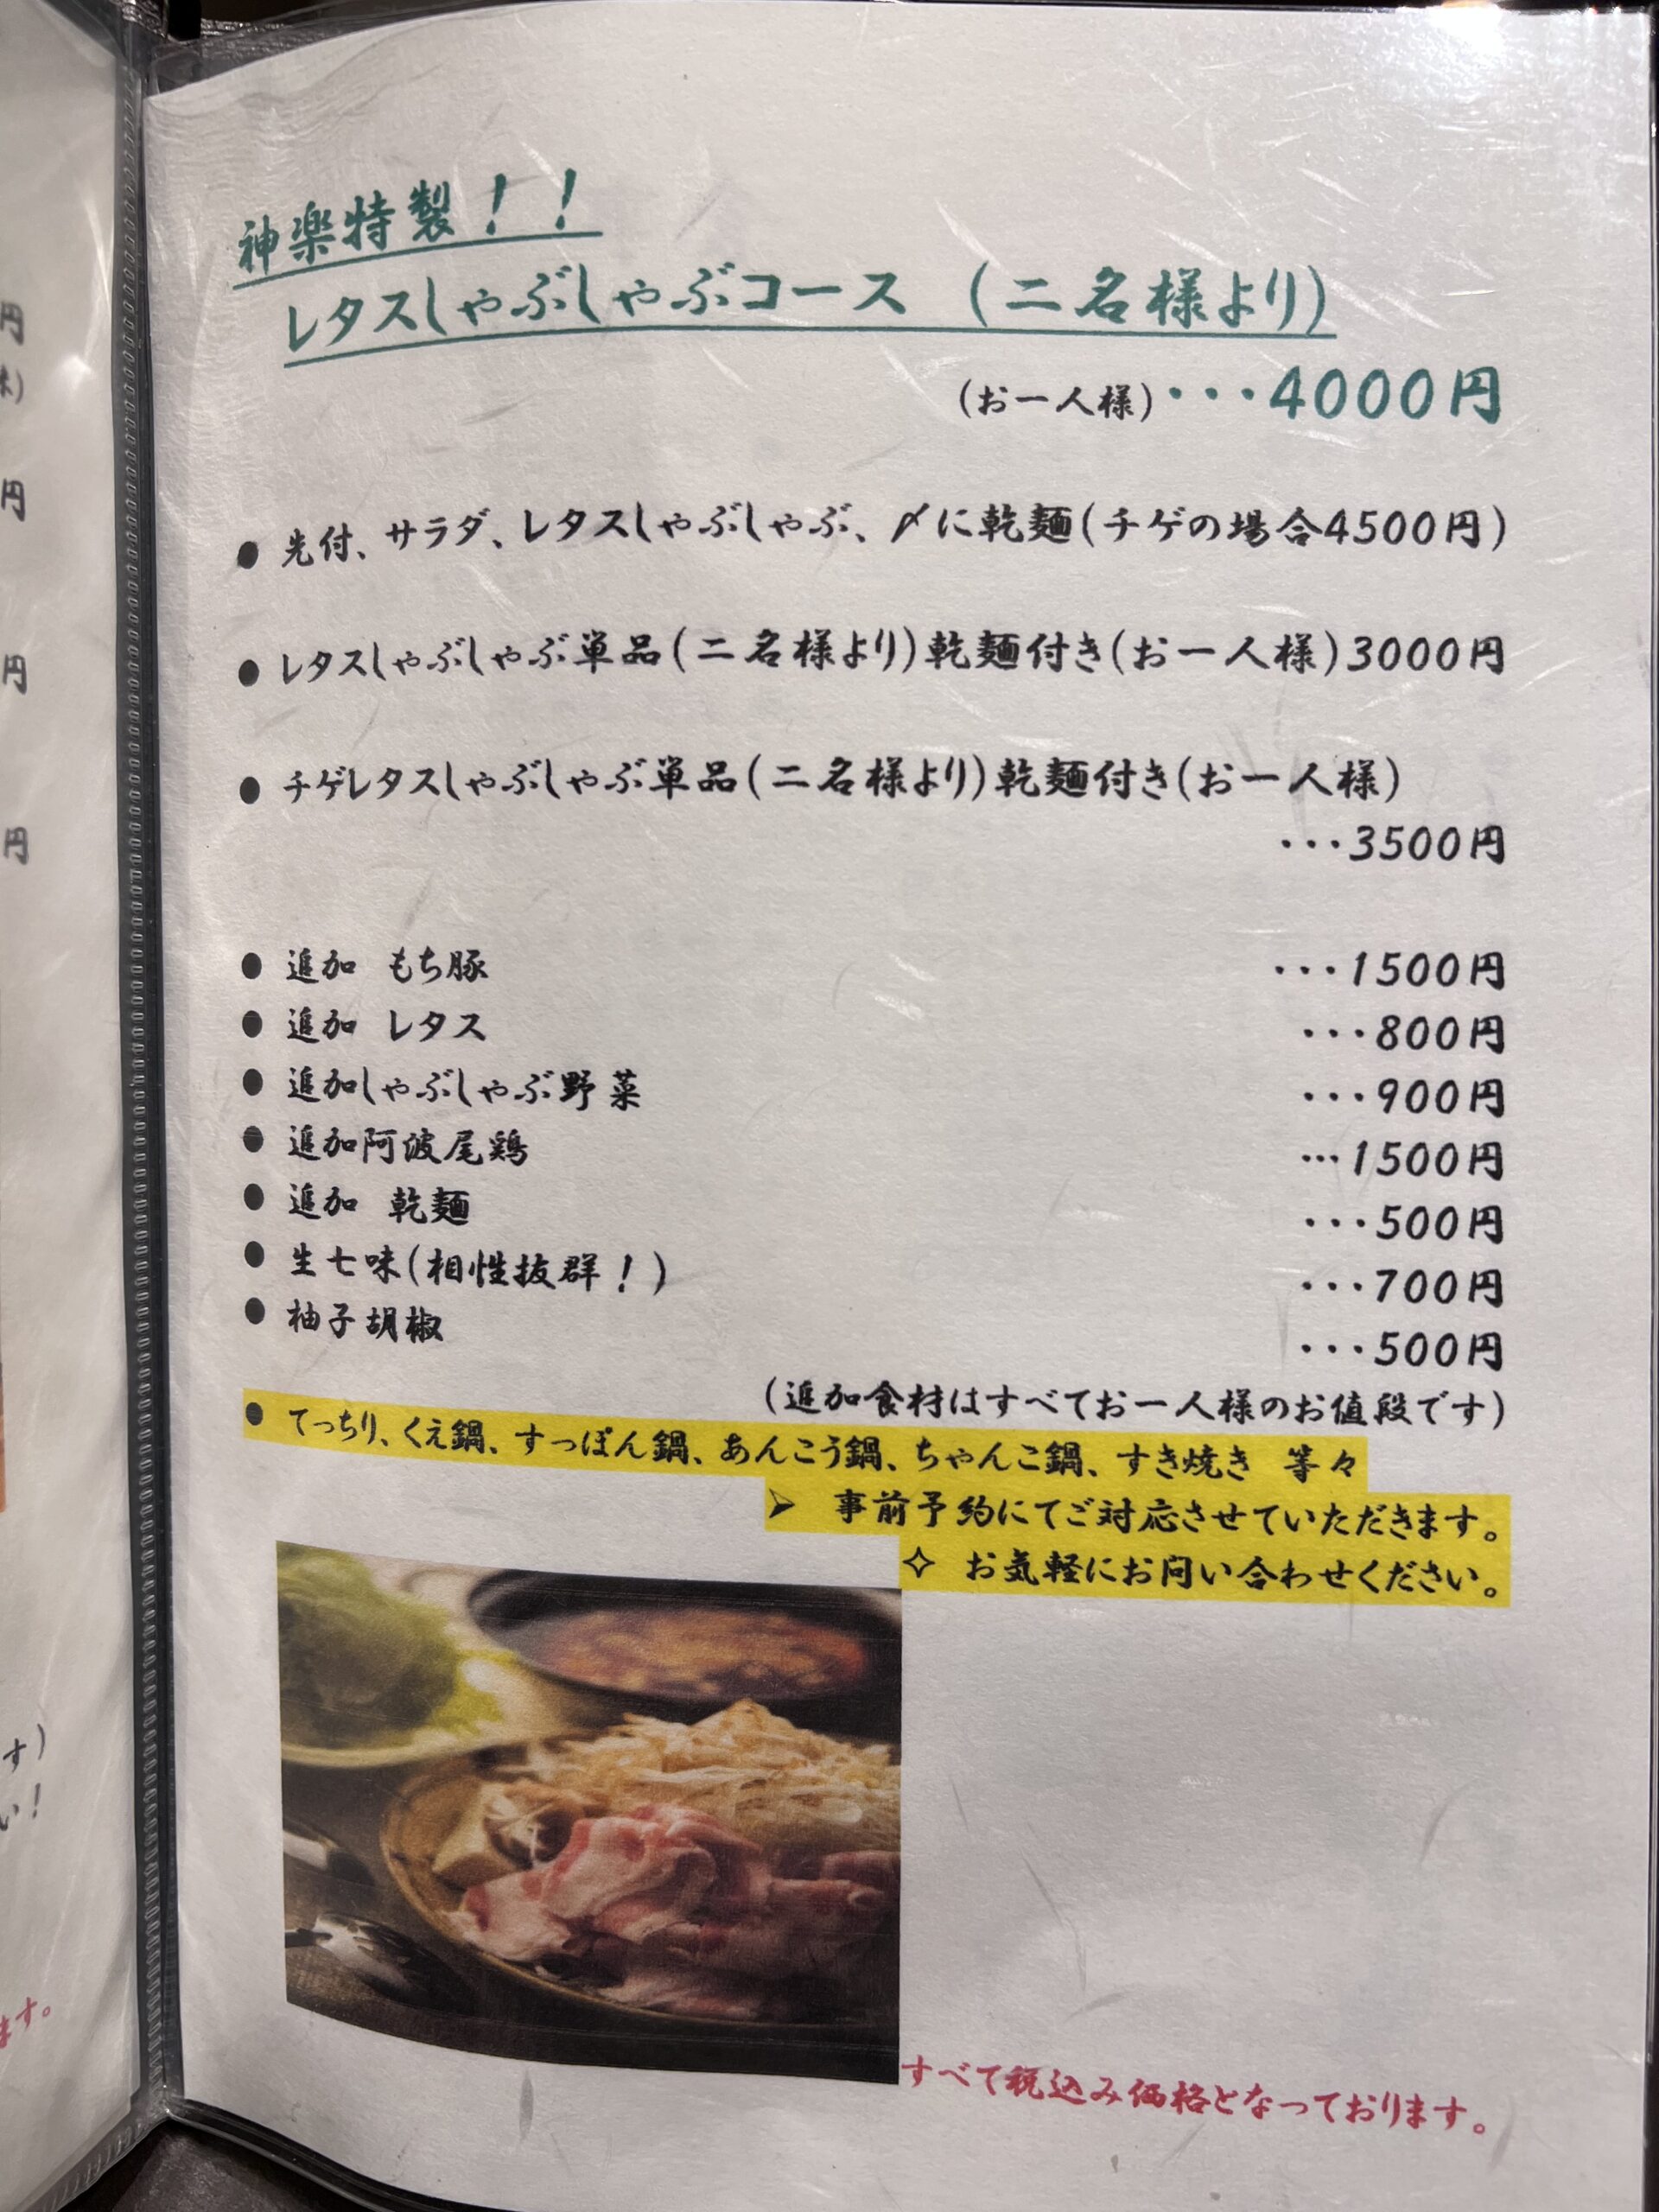 神楽特製！！
レタスしゃぶしゃぶコース (二名様より)
(お一人様)・・・4000円
● 先付、サラダ、レタスしゃぶしゃぶ、〆に乾麺(チゲの場合4500円)
● レタスしゃぶしゃぶ単品(二名様より)乾麺付き(お一人様)3000円
● チゲレタスしゃぶしゃぶ単品(二名様より)乾麺付き(お一人様)
・・・3500円
● 追加 もち豚 ・・・1500円
● 追加 レタス ・・・800円
● 追加しゃぶしゃぶ野菜 ・・・900円
● 追加阿波尾鶏 …1500円
● 追加 乾麺 ・・・500円
● 生七味(相性抜群！) ・・・700円
● 柚子胡椒 ・・・500円
(追加食材はすべてお一人様のお値段です)
● てっちり、くえ鍋、すっぽん鍋、あんこう鍋、ちゃんこ鍋、すき焼き 等々
➢ 事前予約にてご対応させていただきます。
✧ お気軽にお問い合わせください。
すべて税込み価格となっております。
円
円
円
円
す)
い！
ます。